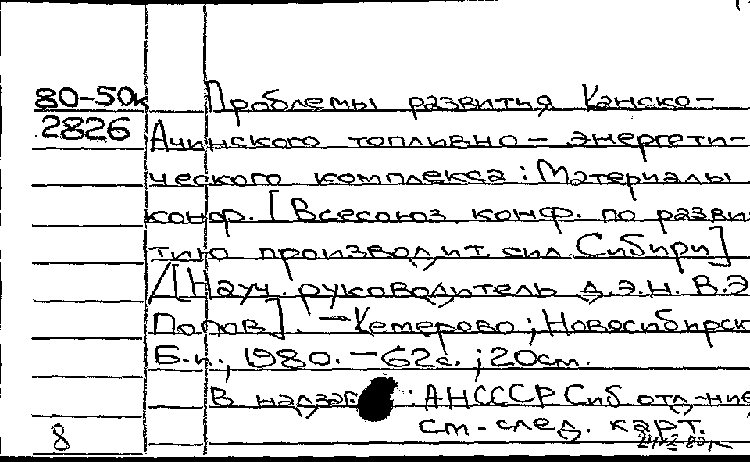 80-50к Проблемы развития Канско-
2826 Ачинского топливно-энергети-
ческого комплекса: Материалы
конф. [Всесоюз. конф. по разви
тию производит. сил Сибири]
/[Науч. руководитель д.э.н. В.Э
Попов]. -Кемерово; Новосибирск
Б.и., 1980. -62с.; 20см.
В надзаг : АНСССР Сиб отд-ние
см-след. карт.
8